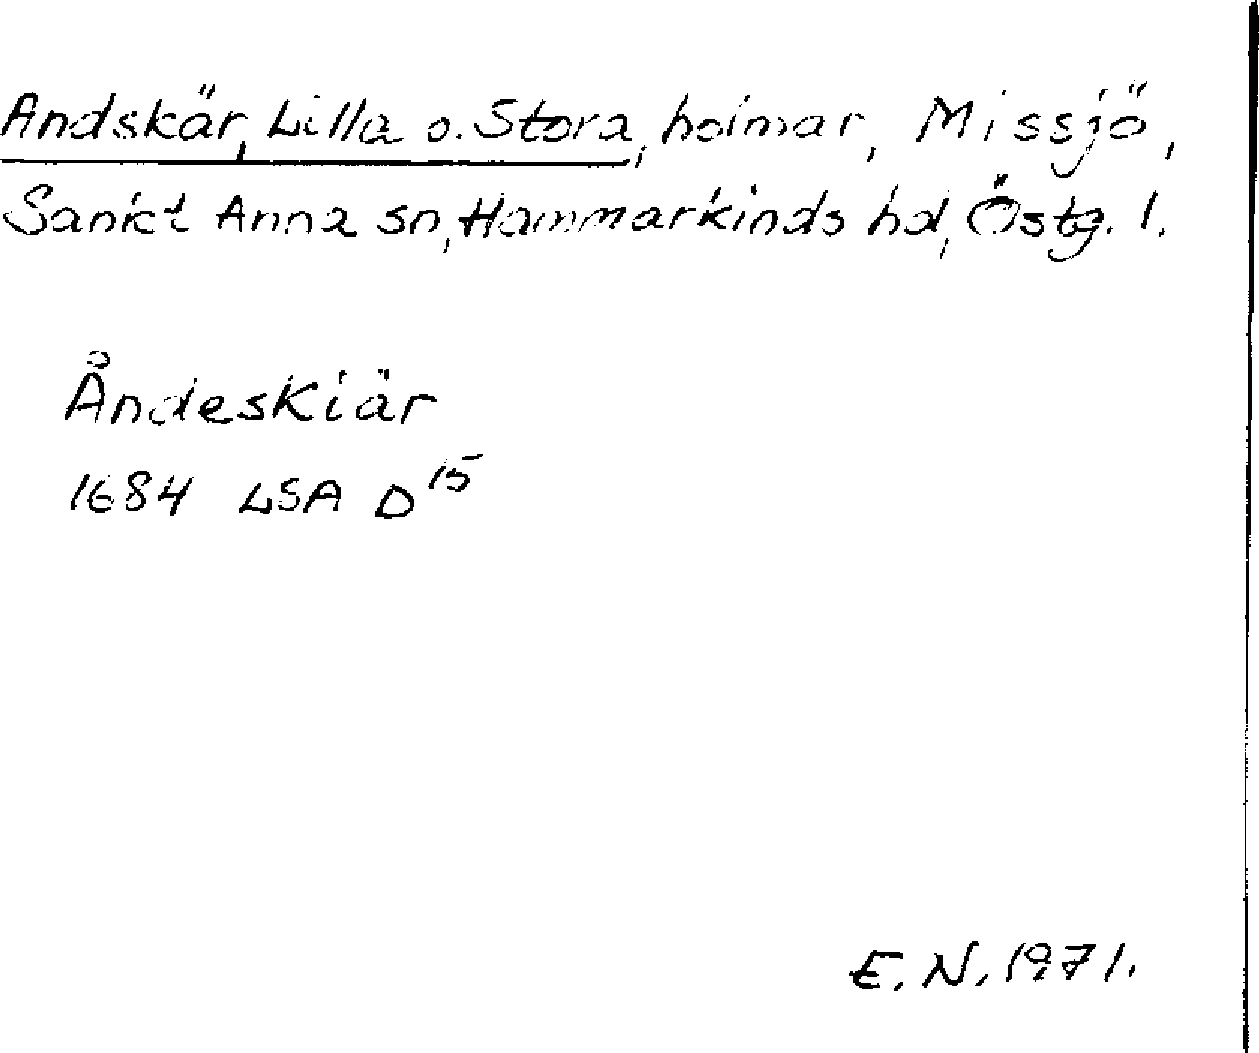 Andskär, Lilla o. Stora, holmar, Missjö,
Sankt Anna sn, Hammarkinds hd, Östg. l.
Åndeskiär
1684 LSA D15
E. N. 1971.